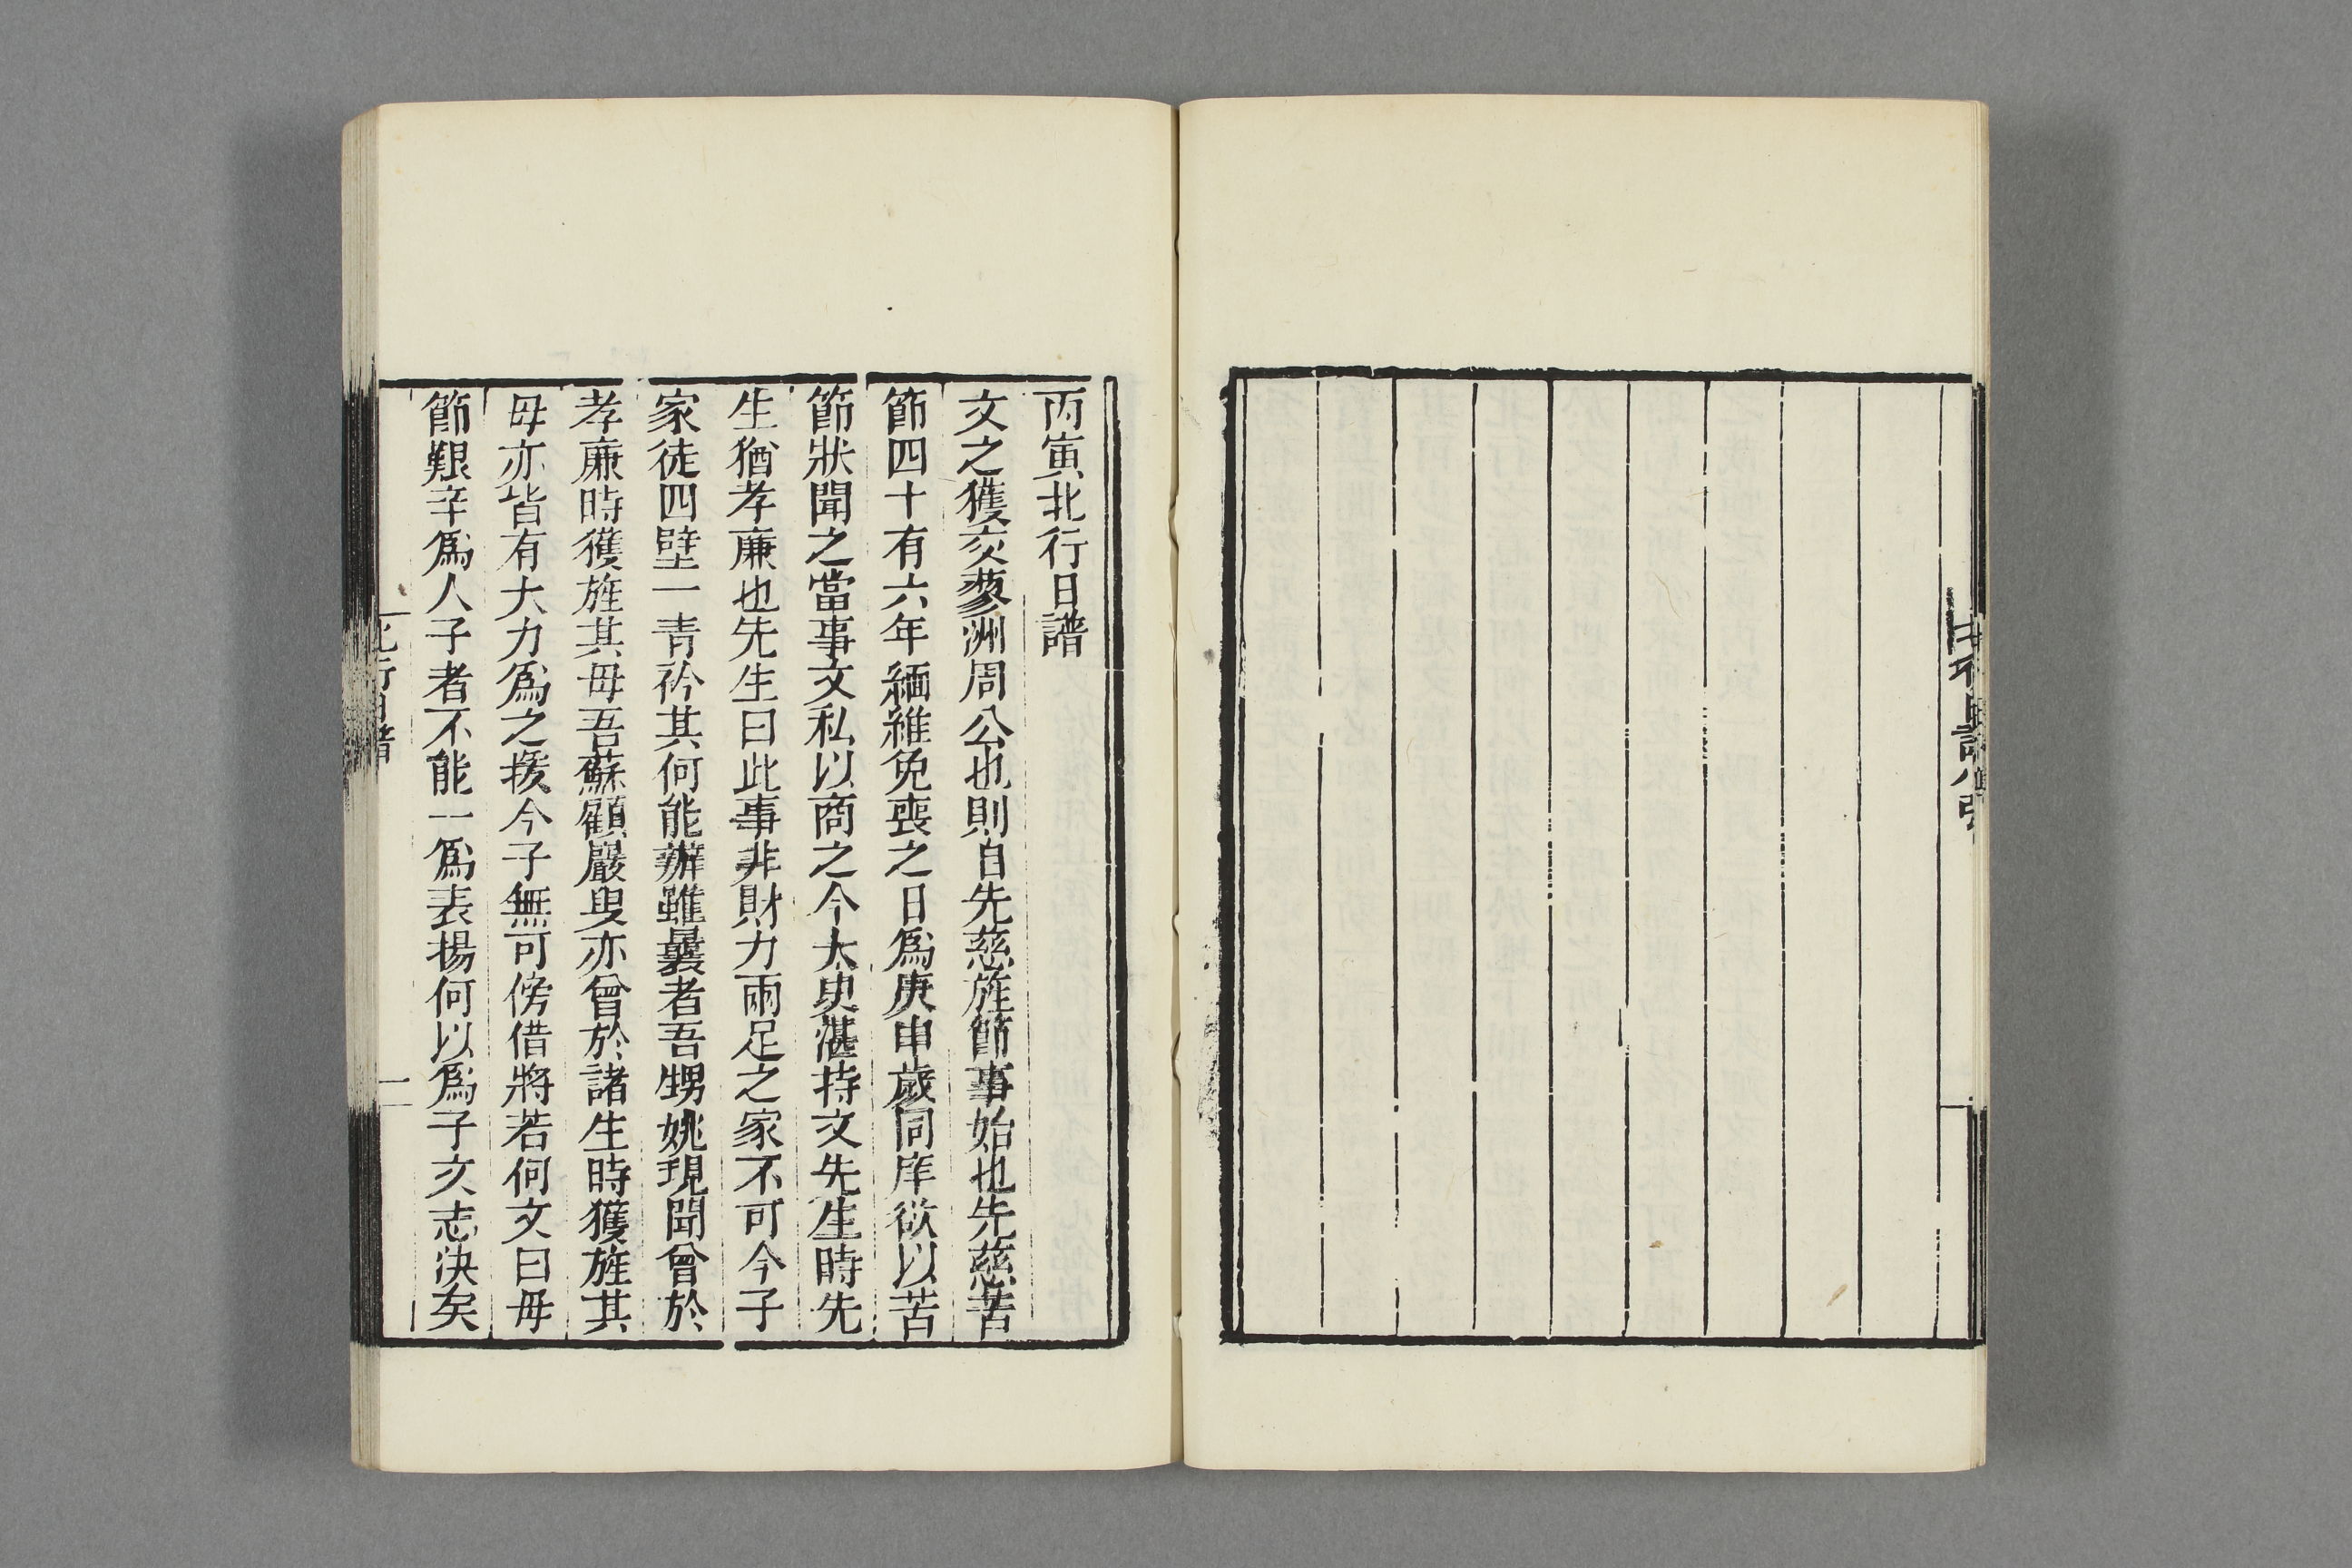 丙寅北行日譜
文之獲交蓼洲周公也則自先慈旌節事始也先慈苦
節四十有六年緬維免喪之日爲庚申歲同庠欲以苦
節狀聞之當事文私以商之今太史湛持文先生時先
生猶孝廉也先生曰此事非財力兩足之家不可今子
家徒四壁一青衿其何能辦雖曩者吾甥姚現聞曾於
孝廉時獲旌其母吾蘇顧嚴叟亦曾於諸生時獲旌其
母亦皆有大力爲之援今子無可傍借將若何文曰母
節艱辛爲人子者不能一爲表揚何以爲子文志決矣
北行日譜
一